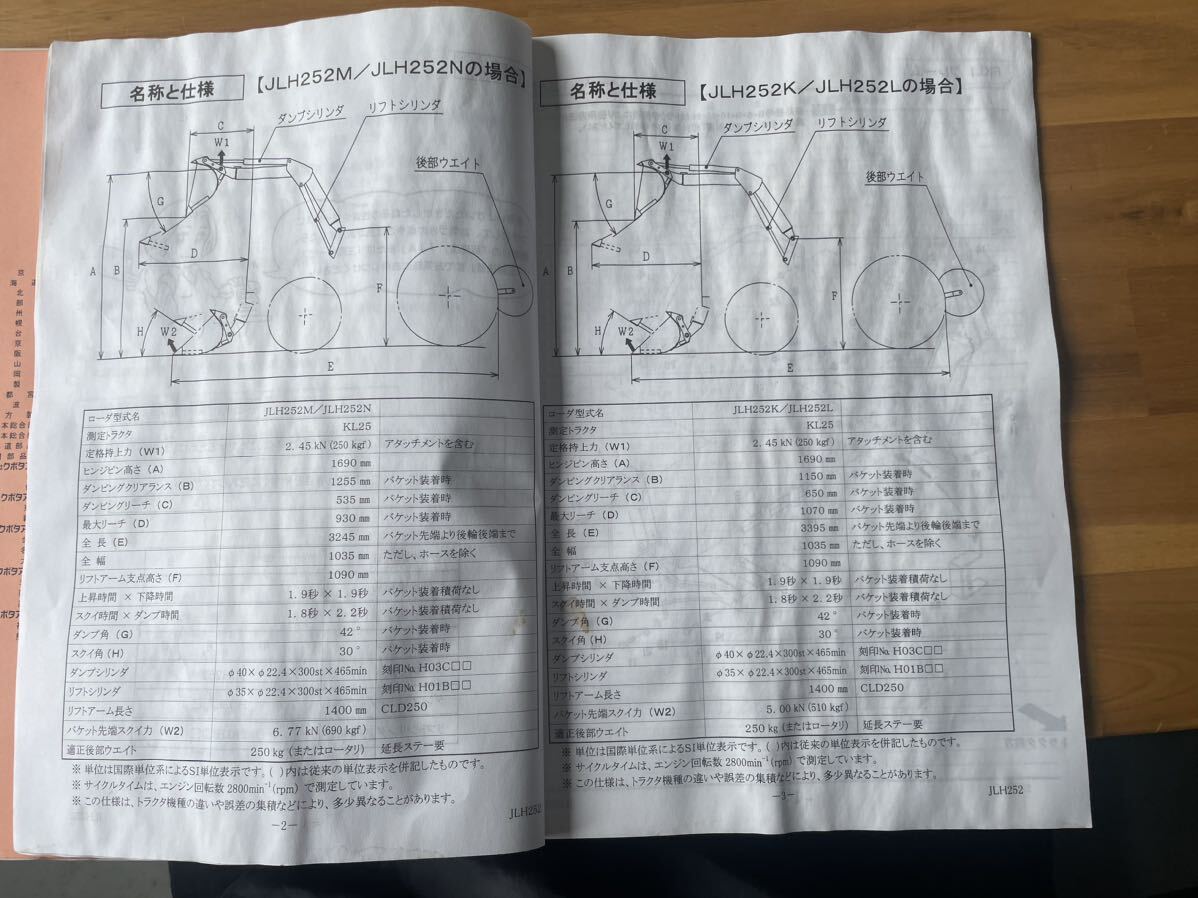 名称と仕様 【JLH252M／JLH252Nの場合】
ダンプシリンダ リフトシリンダ
C
W1
後部ウエイト
G
D
A
B
F
H
W2
E
ローダ型式名 JLH252M／JLH252N
測定トラクタ KL25
定格持上力（W1） 2．45 kN (250 kgf) アタッチメントを含む
ヒンジピン高さ（A） 1690 mm
ダンピングクリアランス（B） 1255 mm バケット装着時
ダンピングリーチ（C） 535 mm バケット装着時
最大リーチ（D） 930 mm バケット装着時
全 長（E） 3245 mm バケット先端より後輪後端まで
全 幅 1035 mm ただし、ホースを除く
リフトアーム支点高さ（F） 1090 mm
上昇時間 × 下降時間 1．9秒 × 1．9秒 バケット装着積荷なし
スクイ時間 × ダンプ時間 1．8秒 × 2．2秒 バケット装着積荷なし
ダンプ角（G） 42° バケット装着時
スクイ角（H） 30° バケット装着時
ダンプシリンダ φ40×φ22.4×300st×465min 刻印№ H03C□□
リフトシリンダ φ35×φ22.4×300st×465min 刻印№ H01B□□
リフトアーム長さ 1400 mm CLD250
バケット先端スクイ力（W2） 6．77 kN (690 kgf)
適正後部ウエイト 250 kg (またはロータリ) 延長ステー要
※ 単位は国際単位系によるSI単位表示です。( )内は従来の単位表示を併記したものです。
※ サイクルタイムは、エンジン回転数 2800min⁻¹(rpm) で測定しています。
※ この仕様は、トラクタ機種の違いや誤差の集積などにより、多少異なることがあります。
－2－
JLH252
名称と仕様 【JLH252K／JLH252Lの場合】
ダンプシリンダ リフトシリンダ
C
W1
後部ウエイト
G
D
A
B
F
H
W2
E
ローダ型式名 JLH252K／JLH252L
測定トラクタ KL25
定格持上力（W1） 2．45 kN (250 kgf) アタッチメントを含む
ヒンジピン高さ（A） 1690 mm
ダンピングクリアランス（B） 1150 mm バケット装着時
ダンピングリーチ（C） 650 mm バケット装着時
最大リーチ（D） 1070 mm バケット装着時
全 長（E） 3395 mm バケット先端より後輪後端まで
全 幅 1035 mm ただし、ホースを除く
リフトアーム支点高さ（F） 1090 mm
上昇時間 × 下降時間 1．9秒 × 1．9秒 バケット装着積荷なし
スクイ時間 × ダンプ時間 1．8秒 × 2．2秒 バケット装着積荷なし
ダンプ角（G） 42° バケット装着時
スクイ角（H） 30° バケット装着時
ダンプシリンダ φ40×φ22.4×300st×465min 刻印№ H03C□□
リフトシリンダ φ35×φ22.4×300st×465min 刻印№ H01B□□
リフトアーム長さ 1400 mm CLD250
バケット先端スクイ力（W2） 5．00 kN (510 kgf)
適正後部ウエイト 250 kg (またはロータリ) 延長ステー要
※ 単位は国際単位系によるSI単位表示です。( )内は従来の単位表示を併記したものです。
※ サイクルタイムは、エンジン回転数 2800min⁻¹(rpm) で測定しています。
※ この仕様は、トラクタ機種の違いや誤差の集積などにより、多少異なることがあります。
－3－
JLH252